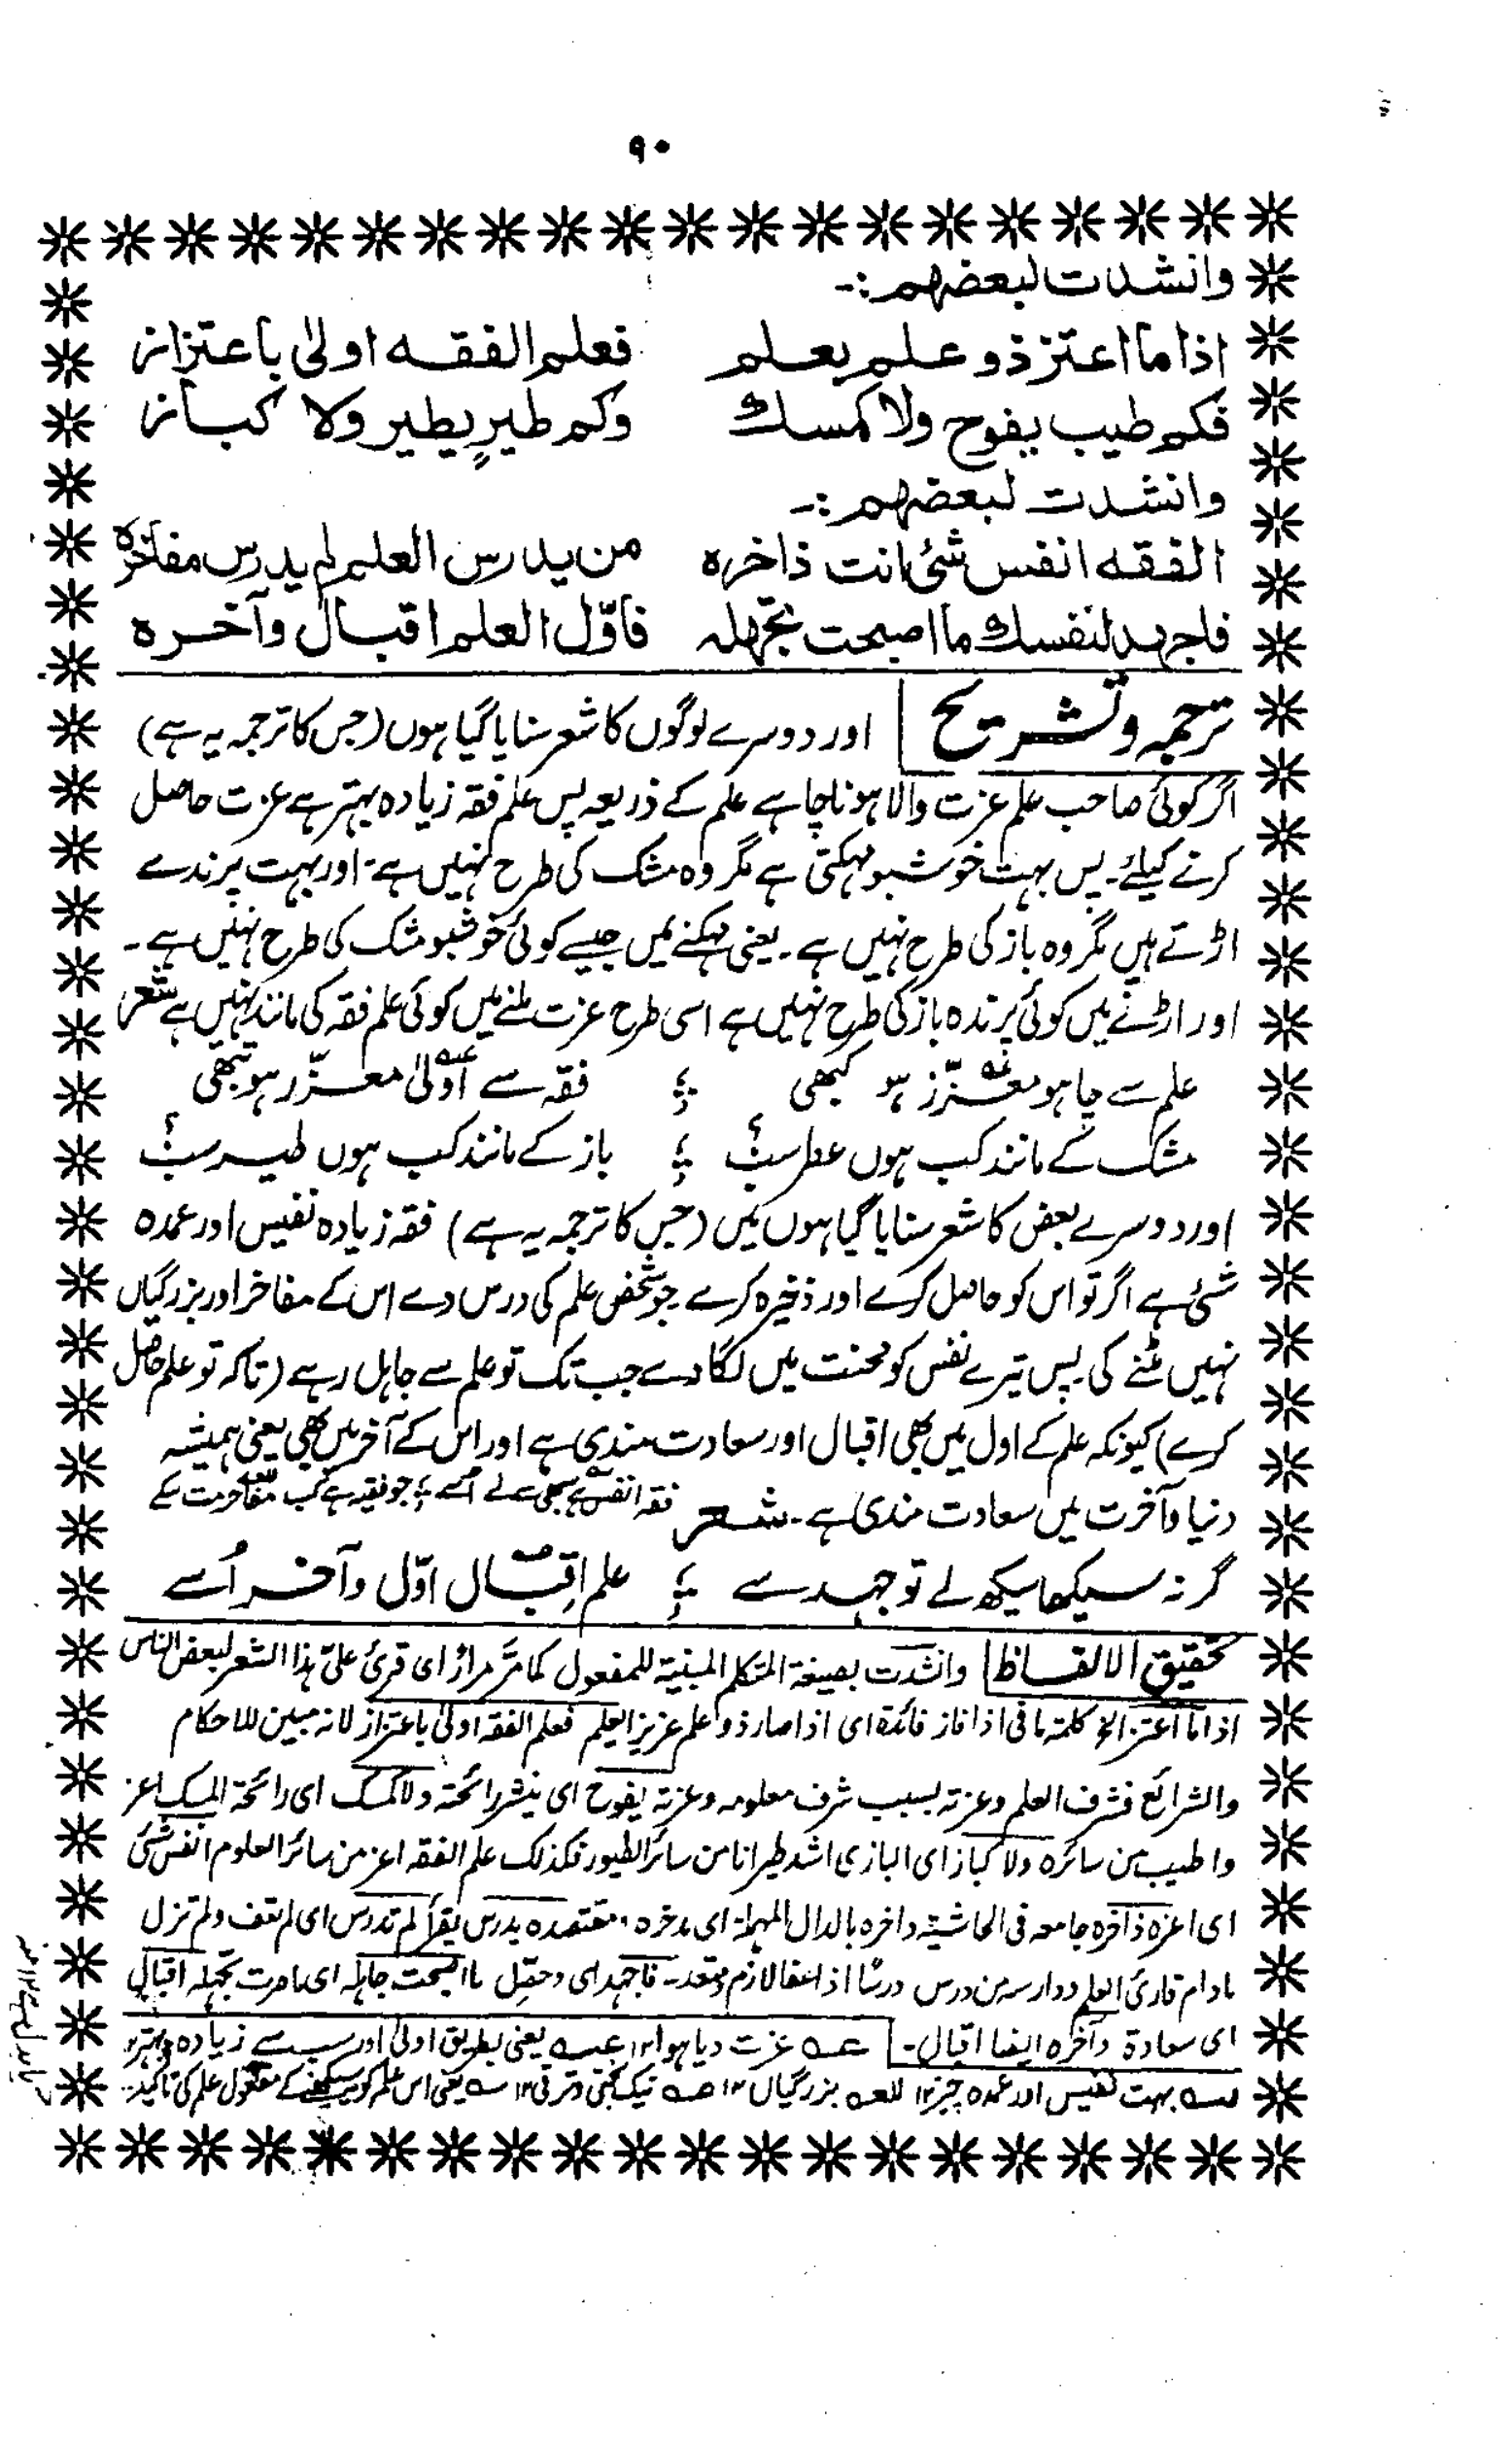 ۹۰
وانشدت لبعضهم :-
اذا ما اعتز ذو علم بعلم فعلم الفقه اولىٰ باعتزاز
فكم طيب يفوح ولا كمسك وكم طيرٍ يطير ولا كباز
وانشدت لبعضهم :-
الفقه انفس شئ انت ذاخره من يدارس العلم لم يدرس مفاخره
فاجهد لنفسك ما اصبحت تجهله فاوّل العلم اقبال وآخره
ترجمہ و تشریح اور دوسرے لوگوں کا شعر سنایا گیا ہوں (جس کا ترجمہ یہ ہے)
اگر کوئی صاحب علم عزت والا ہونا چاہے علم کے ذریعہ پس علم فقہ زیادہ بہتر ہے عزت حاصل
کرنے کیلئے۔ پس بہت خوشبو مہکتی ہے مگر وہ مشک کی طرح نہیں ہے۔ اور بہت پرندے
اڑتے ہیں مگر وہ باز کی طرح نہیں ہے۔ یعنی مہکنے میں جیسے کوئی خوشبو مشک کی طرح نہیں ہے۔
اور اڑنے میں کوئی پرندہ باز کی طرح نہیں ہے اسی طرح عزت ملنے میں کوئی علم فقہ کی مانند نہیں ہے شعر
علم سے چاہو معزّز ہو کبھی ؛ فقہ سے اَولیٰ معزّز ہو تبھی
مشک کے مانند کب ہوں عطر سب ؛ باز کے مانند کب ہوں طیر سب
اور دوسرے بعض کا شعر سنایا گیا ہوں میں (جس کا ترجمہ یہ ہے) فقہ زیادہ نفیس اور عمدہ
شئ ہے اگر تو اس کو حاصل کرے اور ذخیرہ کرے جو شخص علم کی درس دے اس کے مفاخر اور بزرگیاں
نہیں مٹنے کی پس تیرے نفس کو محنت میں لگا دے جب تک تو علم سے جاہل رہے (تاکہ تو علم حاصل
کرے) کیونکہ علم کے اول میں بھی اقبال اور سعادت مندی ہے اور اس کے آخر میں بھی یعنی ہمیشہ
دنیا و آخرت میں سعادت مندی ہے۔ شعر فقہ انفس ہے سبھی سے لے اُسے ؛ جو فقیہ ہے کب مفاخر مٹ سکے
گر نہ سیکھا سیکھ لے تو جہد سے ؛ علم اِقبال اوّل وآخر اُسے
تحقیق الالفاظ وانشدت بصیغة المتکلم المبنیة للمفعول کما مرّ مرارًا ای قرئ علیّ ہذا الشعر لبعض الناس
اذا ما اعتز الخ کلمة ما فی اذا ما زائدة ای اذا صار ذو علم عزیز العلم فعلم الفقه اولیٰ باعتزاز لانه مبین للاحکام
والشرائع فشرف العلم وعزته بسبب شرف معلومه وعزته یفوح ای ینشر رائحة ولا کمسک ای رائحة المسک اعز
واطیب من سائره ولا کباز ای البازی اشد طیرانا من سائر الطیور فکذلک علم الفقه اعز من سائر العلوم انفس شئ
ای اعزه ذاخره جامعه فی الحاشیة داخره بالدال المہملة ای مدخره یدرس یقرأ لم تدرس ای لم تعف ولم تزل
مادام قارئ العلم ودارسه من درس درسًا اذا عفا لازم ومتعد۔ فاجہد ای وحصِّل ما اصبحت جاہله ای ما صرت تجہله اقبال
ای سعادة وآخره ایضا اقبال۔ عہ عزت دیا ہوا ۱۲ عہ یعنی بطریق اولیٰ اور سب سے زیادہ وبہتر
سہ بہت نفیس اور عمدہ چیز ۱۲ للعہ بزرگیاں ۱۲ صہ نیک بختی وترقی ۱۲ سہ یعنی اس علم کو سیکھنے کے علم کی تاکید